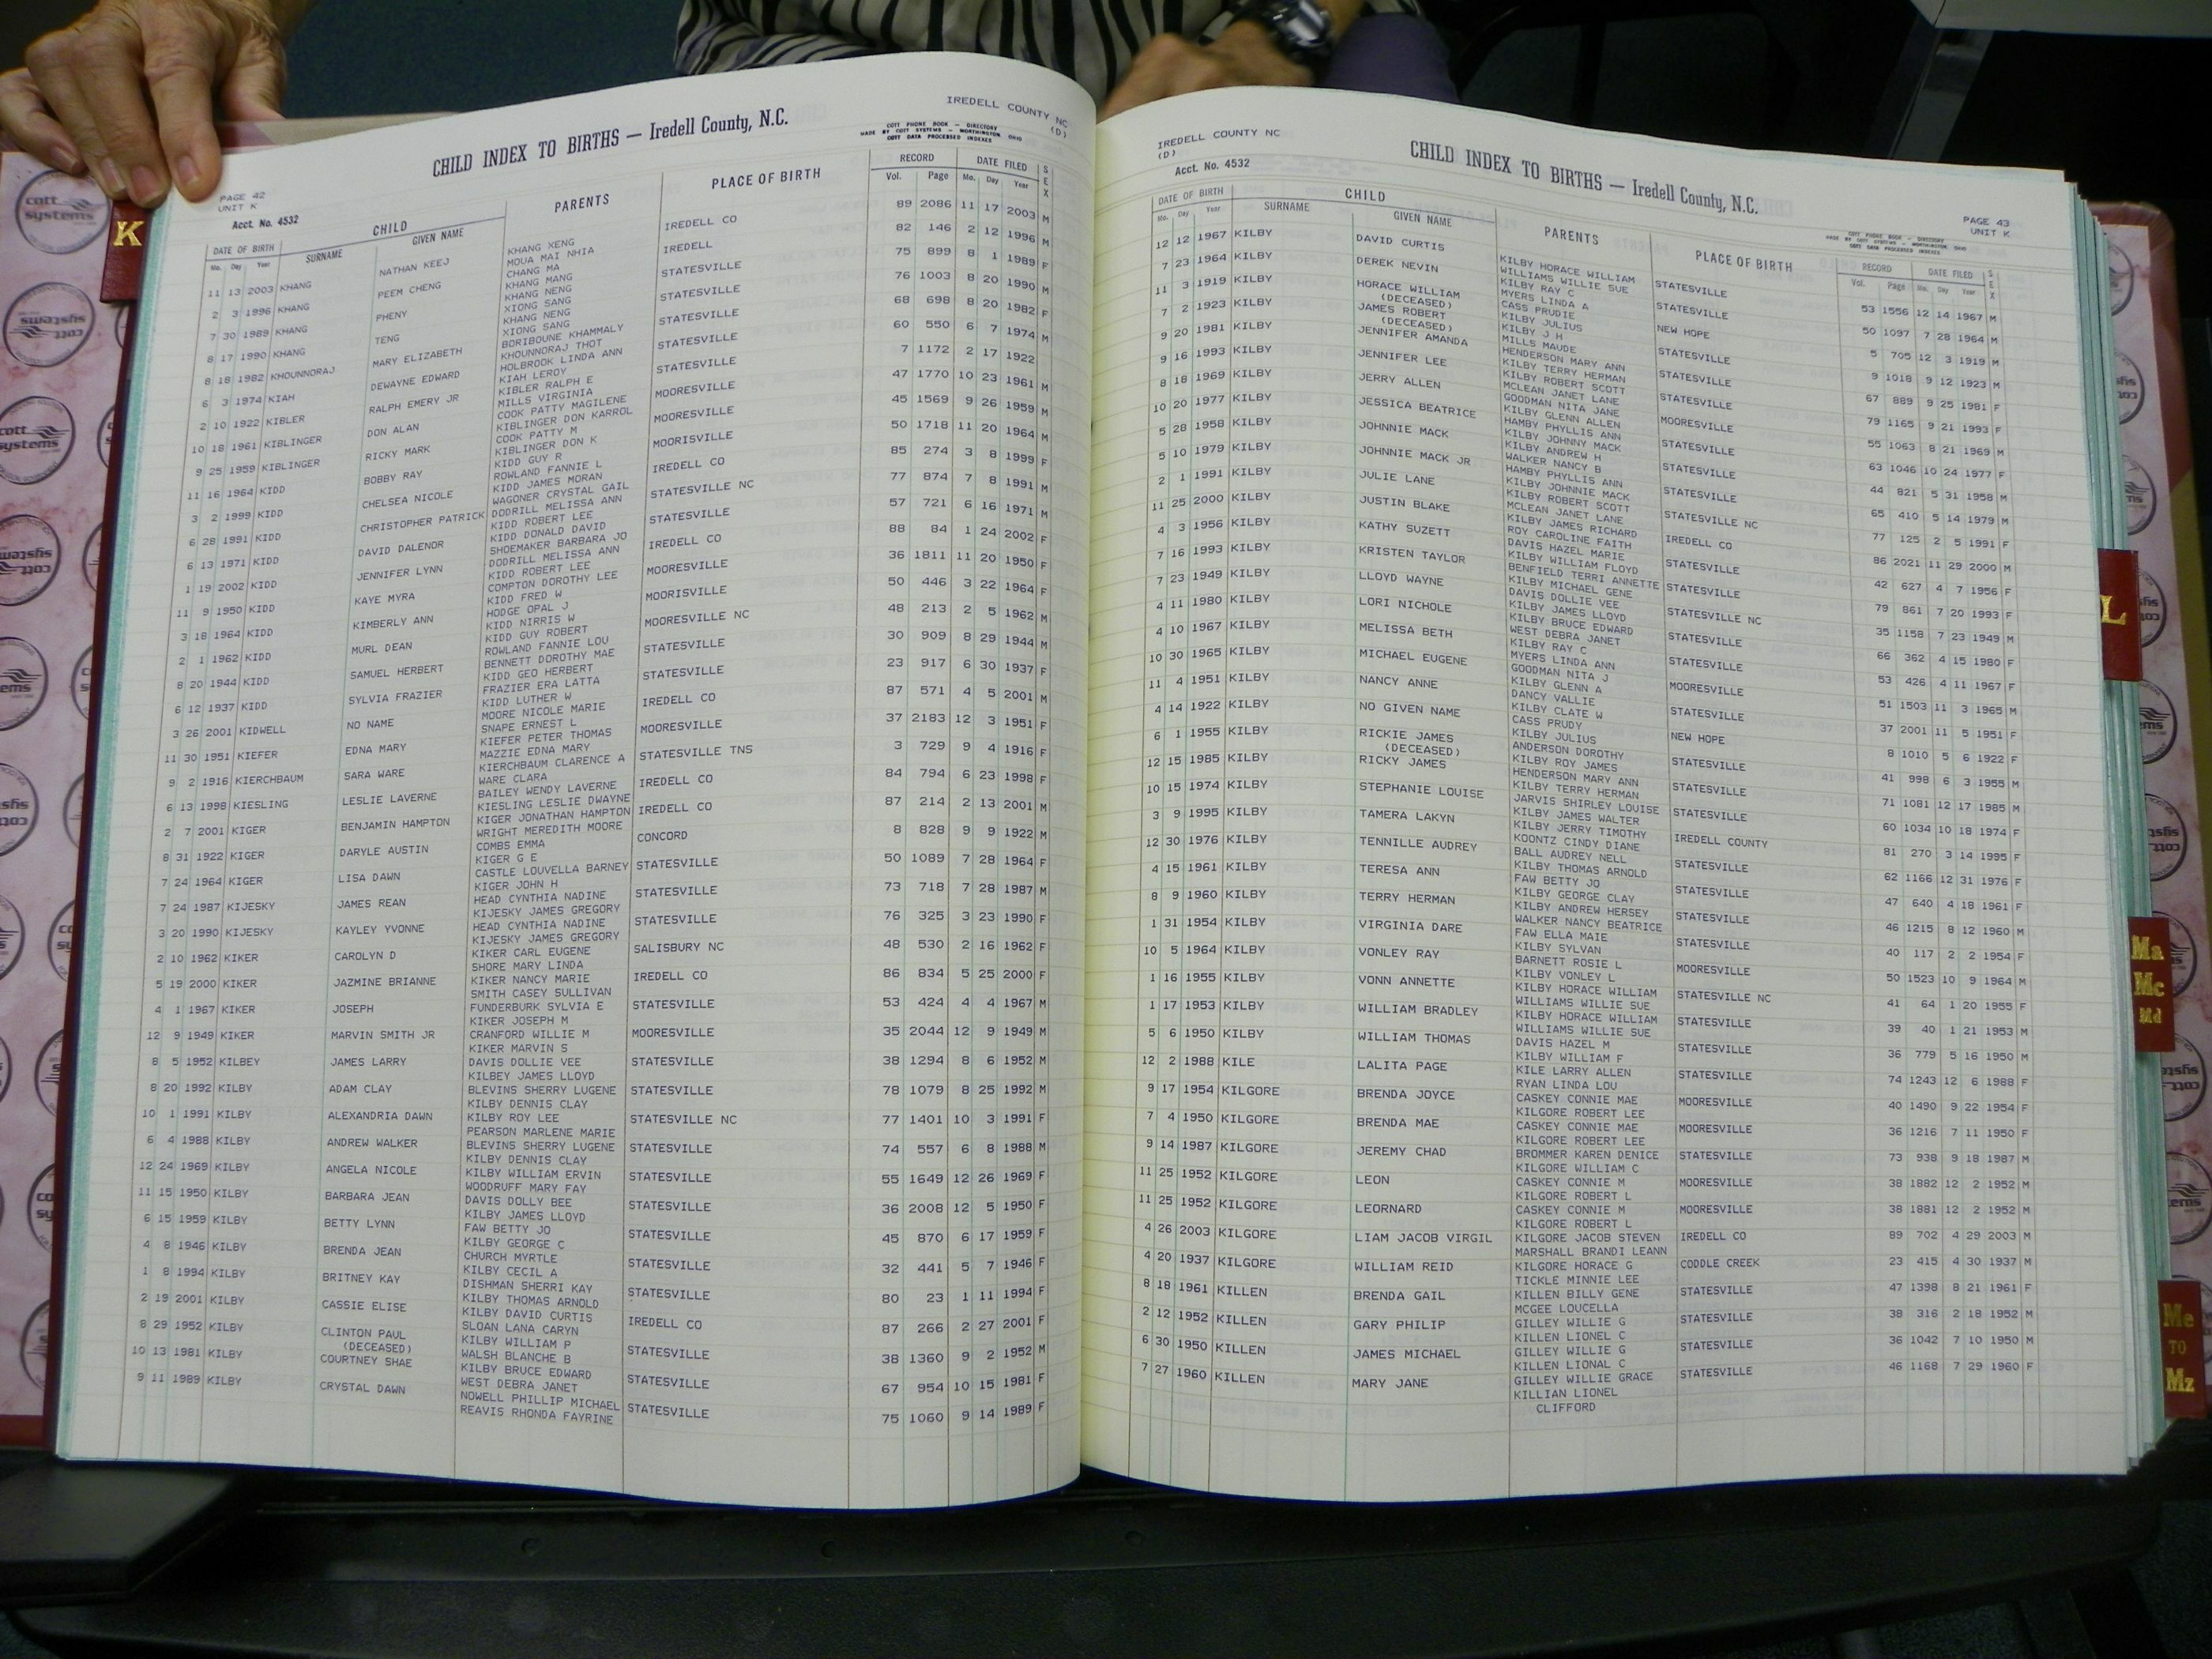 IREDELL COUNTY NC
(D)
CHILD INDEX TO BIRTHS — Iredell County, N.C.
COTT PHONE BOOK - DIRECTORY
MADE BY COTT SYSTEMS - WORTHINGTON, OHIO
COTT DATA PROCESSED INDEXES
PAGE 42
UNIT K
Acct. No. 4532
DATE OF BIRTH CHILD PARENTS PLACE OF BIRTH RECORD DATE FILED SEX
Mo. Day Year SURNAME GIVEN NAME Vol. Page Mo. Day Year
11 13 2003 KHANG NATHAN KEEJ KHANG XENG IREDELL CO 89 2086 11 17 2003 M
MOUA MAI NHIA
2 3 1996 KHANG PEEM CHENG CHANG MA IREDELL 82 146 2 12 1996 M
KHANG MANG
7 30 1989 KHANG PHENY KHANG NENG STATESVILLE 75 899 8 1 1989 F
XIONG SANG
8 17 1990 KHANG TENG KHANG NENG STATESVILLE 76 1003 8 20 1990 M
XIONG SANG
8 18 1982 KHOUNNORAJ MARY ELIZABETH BORIBOUNE KHAMMALY STATESVILLE 68 698 8 20 1982 F
KHOUNNORAJ THOT
6 3 1974 KIAH DEWAYNE EDWARD HOLBROOK LINDA ANN STATESVILLE 60 550 6 7 1974 M
KIAH LEROY
2 10 1922 KIBLER RALPH EMERY JR KIBLER RALPH E STATESVILLE 7 1172 2 17 1922
MILLS VIRGINIA
10 18 1961 KIBLINGER DON ALAN COOK PATTY MAGILENE MOORESVILLE 47 1770 10 23 1961 M
KIBLINGER DON KARROL
9 25 1959 KIBLINGER RICKY MARK COOK PATTY M MOORESVILLE 45 1569 9 26 1959 M
KIBLINGER DON K
11 16 1964 KIDD BOBBY RAY KIDD GUY R MOORISVILLE 50 1718 11 20 1964 M
ROWLAND FANNIE L
3 2 1999 KIDD CHELSEA NICOLE KIDD JAMES MORAN IREDELL CO 85 274 3 8 1999 F
WAGONER CRYSTAL GAIL
6 28 1991 KIDD CHRISTOPHER PATRICK DODRILL MELISSA ANN STATESVILLE NC 77 874 7 8 1991 M
KIDD ROBERT LEE
6 13 1971 KIDD DAVID DALENOR KIDD DONALD DAVID STATESVILLE 57 721 6 16 1971 M
SHOEMAKER BARBARA JO
1 19 2002 KIDD JENNIFER LYNN DODRILL MELISSA ANN IREDELL CO 88 84 1 24 2002 F
KIDD ROBERT LEE
11 9 1950 KIDD KAYE MYRA COMPTON DOROTHY LEE MOORESVILLE 36 1811 11 20 1950 F
KIDD FRED W
3 18 1964 KIDD KIMBERLY ANN HODGE OPAL J MOORISVILLE 50 446 3 22 1964 F
KIDD NIRRIS W
2 1 1962 KIDD MURL DEAN KIDD GUY ROBERT MOORESVILLE NC 48 213 2 5 1962 M
ROWLAND FANNIE LOU
8 20 1944 KIDD SAMUEL HERBERT BENNETT DOROTHY MAE STATESVILLE 30 909 8 29 1944 M
KIDD GEO HERBERT
6 12 1937 KIDD SYLVIA FRAZIER FRAZIER ERA LATTA STATESVILLE 23 917 6 30 1937 F
KIDD LUTHER W
3 26 2001 KIDWELL NO NAME MOORE NICOLE MARIE IREDELL CO 87 571 4 5 2001 M
SNAPE ERNEST L
11 30 1951 KIEFER EDNA MARY KIEFER PETER THOMAS MOORESVILLE 37 2183 12 3 1951 F
MAZZIE EDNA MARY
9 2 1916 KIERCHBAUM SARA WARE KIERCHBAUM CLARENCE A STATESVILLE TNS 3 729 9 4 1916 F
WARE CLARA
6 13 1998 KIESLING LESLIE LAVERNE BAILEY WENDY LAVERNE IREDELL CO 84 794 6 23 1998 F
KIESLING LESLIE DWAYNE
2 7 2001 KIGER BENJAMIN HAMPTON KIGER JONATHAN HAMPTON IREDELL CO 87 214 2 13 2001 M
WRIGHT MEREDITH MOORE
8 31 1922 KIGER DARYLE AUSTIN COMBS EMMA CONCORD 8 828 9 9 1922 M
KIGER G E
7 24 1964 KIGER LISA DAWN CASTLE LOUVELLA BARNEY STATESVILLE 50 1089 7 28 1964 F
KIGER JOHN H
7 24 1987 KIJESKY JAMES REAN HEAD CYNTHIA NADINE STATESVILLE 73 718 7 28 1987 M
KIJESKY JAMES GREGORY
3 20 1990 KIJESKY KAYLEY YVONNE HEAD CYNTHIA NADINE STATESVILLE 76 325 3 23 1990 F
KIJESKY JAMES GREGORY
2 10 1962 KIKER CAROLYN D KIKER CARL EUGENE SALISBURY NC 48 530 2 16 1962 F
SHORE MARY LINDA
5 19 2000 KIKER JAZMINE BRIANNE KIKER NANCY MARIE IREDELL CO 86 834 5 25 2000 F
SMITH CASEY SULLIVAN
4 1 1967 KIKER JOSEPH FUNDERBURK SYLVIA E STATESVILLE 53 424 4 4 1967 M
KIKER JOSEPH M
12 9 1949 KIKER MARVIN SMITH JR CRANFORD WILLIE M MOORESVILLE 35 2044 12 9 1949 M
KIKER MARVIN S
8 5 1952 KILBEY JAMES LARRY DAVIS DOLLIE VEE STATESVILLE 38 1294 8 6 1952 M
KILBEY JAMES LLOYD
8 20 1992 KILBY ADAM CLAY BLEVINS SHERRY LUGENE STATESVILLE 78 1079 8 25 1992 M
KILBY DENNIS CLAY
10 1 1991 KILBY ALEXANDRIA DAWN KILBY ROY LEE STATESVILLE NC 77 1401 10 3 1991 F
PEARSON MARLENE MARIE
6 4 1988 KILBY ANDREW WALKER BLEVINS SHERRY LUGENE STATESVILLE 74 557 6 8 1988 M
KILBY DENNIS CLAY
12 24 1969 KILBY ANGELA NICOLE KILBY WILLIAM ERVIN STATESVILLE 55 1649 12 26 1969 F
WOODRUFF MARY FAY
11 15 1950 KILBY BARBARA JEAN DAVIS DOLLY BEE STATESVILLE 36 2008 12 5 1950 F
KILBY JAMES LLOYD
6 15 1959 KILBY BETTY LYNN FAW BETTY JO STATESVILLE 45 870 6 17 1959 F
KILBY GEORGE C
4 8 1946 KILBY BRENDA JEAN CHURCH MYRTLE STATESVILLE 32 441 5 7 1946 F
KILBY CECIL A
1 8 1994 KILBY BRITNEY KAY DISHMAN SHERRI KAY STATESVILLE 80 23 1 11 1994 F
KILBY THOMAS ARNOLD
2 19 2001 KILBY CASSIE ELISE KILBY DAVID CURTIS IREDELL CO 87 266 2 27 2001 F
SLOAN LANA CARYN
8 29 1952 KILBY CLINTON PAUL KILBY WILLIAM P STATESVILLE 38 1360 9 2 1952 M
(DECEASED) WALSH BLANCHE B
10 13 1981 KILBY COURTNEY SHAE KILBY BRUCE EDWARD STATESVILLE 67 954 10 15 1981 F
WEST DEBRA JANET
9 11 1989 KILBY CRYSTAL DAWN NOWELL PHILLIP MICHAEL STATESVILLE 75 1060 9 14 1989 F
REAVIS RHONDA FAYRINE
IREDELL COUNTY NC
(D)
CHILD INDEX TO BIRTHS — Iredell County, N.C.
Acct. No. 4532
PAGE 43
UNIT K
COTT PHONE BOOK - DIRECTORY
MADE BY COTT SYSTEMS - WORTHINGTON, OHIO
COTT DATA PROCESSED INDEXES
DATE OF BIRTH CHILD PARENTS PLACE OF BIRTH RECORD DATE FILED SEX
Mo. Day Year SURNAME GIVEN NAME Vol. Page Mo. Day Year
12 12 1967 KILBY DAVID CURTIS KILBY HORACE WILLIAM STATESVILLE 53 1556 12 14 1967 M
WILLIAMS WILLIE SUE
7 23 1964 KILBY DEREK NEVIN KILBY RAY C STATESVILLE 50 1097 7 28 1964 M
MYERS LINDA A
11 3 1919 KILBY HORACE WILLIAM CASS PRUDIE NEW HOPE 5 705 12 3 1919 M
(DECEASED) KILBY JULIUS
7 2 1923 KILBY JAMES ROBERT KILBY J H STATESVILLE 9 1018 9 12 1923 M
(DECEASED) MILLS MAUDE
9 20 1981 KILBY JENNIFER AMANDA HENDERSON MARY ANN STATESVILLE 67 889 9 25 1981 F
KILBY TERRY HERMAN
9 16 1993 KILBY JENNIFER LEE KILBY ROBERT SCOTT STATESVILLE 79 1165 9 21 1993 F
MCLEAN JANET LANE
8 18 1969 KILBY JERRY ALLEN GOODMAN NITA JANE MOORESVILLE 55 1063 8 21 1969 M
KILBY GLENN ALLEN
10 20 1977 KILBY JESSICA BEATRICE HAMBY PHYLLIS ANN STATESVILLE 63 1046 10 24 1977 F
KILBY JOHNNY MACK
5 28 1958 KILBY JOHNNIE MACK KILBY ANDREW H STATESVILLE 44 821 5 31 1958 M
WALKER NANCY B
5 10 1979 KILBY JOHNNIE MACK JR HAMBY PHYLLIS ANN STATESVILLE 65 410 5 14 1979 M
KILBY JOHNNIE MACK
2 1 1991 KILBY JULIE LANE KILBY ROBERT SCOTT STATESVILLE NC 77 125 2 5 1991 F
MCLEAN JANET LANE
11 25 2000 KILBY JUSTIN BLAKE KILBY JAMES RICHARD IREDELL CO 86 2021 11 29 2000 M
ROY CAROLINE FAITH
4 3 1956 KILBY KATHY SUZETT DAVIS HAZEL MARIE STATESVILLE 42 627 4 7 1956 F
KILBY WILLIAM FLOYD
7 16 1993 KILBY KRISTEN TAYLOR BENFIELD TERRI ANNETTE STATESVILLE 79 861 7 20 1993 F
KILBY MICHAEL GENE
7 23 1949 KILBY LLOYD WAYNE DAVIS DOLLIE VEE STATESVILLE NC 35 1158 7 23 1949 M
KILBY JAMES LLOYD
4 11 1980 KILBY LORI NICHOLE KILBY BRUCE EDWARD STATESVILLE 66 362 4 15 1980 F
WEST DEBRA JANET
4 10 1967 KILBY MELISSA BETH KILBY RAY C STATESVILLE 53 426 4 11 1967 F
MYERS LINDA ANN
10 30 1965 KILBY MICHAEL EUGENE GOODMAN NITA J MOORESVILLE 51 1503 11 3 1965 M
KILBY GLENN A
11 4 1951 KILBY NANCY ANNE DANCY VALLIE STATESVILLE 37 2001 11 5 1951 F
KILBY CLATE W
4 14 1922 KILBY NO GIVEN NAME CASS PRUDY NEW HOPE 8 1010 5 6 1922 F
KILBY JULIUS
6 1 1955 KILBY RICKIE JAMES ANDERSON DOROTHY STATESVILLE 41 998 6 3 1955 M
(DECEASED) KILBY ROY JAMES
12 15 1985 KILBY RICKY JAMES HENDERSON MARY ANN STATESVILLE 71 1081 12 17 1985 M
KILBY TERRY HERMAN
10 15 1974 KILBY STEPHANIE LOUISE JARVIS SHIRLEY LOUISE STATESVILLE 60 1034 10 18 1974 F
KILBY JAMES WALTER
3 9 1995 KILBY TAMERA LAKYN KILBY JERRY TIMOTHY IREDELL COUNTY 81 270 3 14 1995 F
KOONTZ CINDY DIANE
12 30 1976 KILBY TENNILLE AUDREY BALL AUDREY NELL STATESVILLE 62 1166 12 31 1976 F
KILBY THOMAS ARNOLD
4 15 1961 KILBY TERESA ANN FAW BETTY JO STATESVILLE 47 640 4 18 1961 F
KILBY GEORGE CLAY
8 9 1960 KILBY TERRY HERMAN KILBY ANDREW HERSEY STATESVILLE 46 1215 8 12 1960 M
WALKER NANCY BEATRICE
1 31 1954 KILBY VIRGINIA DARE FAW ELLA MAIE STATESVILLE 40 117 2 2 1954 F
KILBY SYLVAN
10 5 1964 KILBY VONLEY RAY BARNETT ROSIE L MOORESVILLE 50 1523 10 9 1964 M
KILBY VONLEY L
1 16 1955 KILBY VONN ANNETTE KILBY HORACE WILLIAM STATESVILLE NC 41 64 1 20 1955 F
WILLIAMS WILLIE SUE
1 17 1953 KILBY WILLIAM BRADLEY KILBY HORACE WILLIAM STATESVILLE 39 40 1 21 1953 M
WILLIAMS WILLIE SUE
5 6 1950 KILBY WILLIAM THOMAS DAVIS HAZEL M STATESVILLE 36 779 5 16 1950 M
KILBY WILLIAM F
12 2 1988 KILE LALITA PAGE KILE LARRY ALLEN STATESVILLE 74 1243 12 6 1988 F
RYAN LINDA LOU
9 17 1954 KILGORE BRENDA JOYCE CASKEY CONNIE MAE MOORESVILLE 40 1490 9 22 1954 F
KILGORE ROBERT LEE
7 4 1950 KILGORE BRENDA MAE CASKEY CONNIE MAE MOORESVILLE 36 1216 7 11 1950 F
KILGORE ROBERT LEE
9 14 1987 KILGORE JEREMY CHAD BROMMER KAREN DENICE STATESVILLE 73 938 9 18 1987 M
KILGORE WILLIAM C
11 25 1952 KILGORE LEON CASKEY CONNIE M MOORESVILLE 38 1882 12 2 1952 M
KILGORE ROBERT L
11 25 1952 KILGORE LEORNARD CASKEY CONNIE M MOORESVILLE 38 1881 12 2 1952 M
KILGORE ROBERT L
4 26 2003 KILGORE LIAM JACOB VIRGIL KILGORE JACOB STEVEN IREDELL CO 89 702 4 29 2003 M
MARSHALL BRANDI LEANN
4 20 1937 KILGORE WILLIAM REID KILGORE HORACE G CODDLE CREEK 23 415 4 30 1937 M
TICKLE MINNIE LEE
8 18 1961 KILLEN BRENDA GAIL KILLEN BILLY GENE STATESVILLE 47 1398 8 21 1961 F
MCGEE LOUCELLA
2 12 1952 KILLEN GARY PHILIP GILLEY WILLIE G STATESVILLE 38 316 2 18 1952 M
KILLEN LIONEL C
6 30 1950 KILLEN JAMES MICHAEL GILLEY WILLIE G STATESVILLE 36 1042 7 10 1950 M
KILLEN LIONAL C
7 27 1960 KILLEN MARY JANE GILLEY WILLIE GRACE STATESVILLE 46 1168 7 29 1960 F
KILLIAN LIONEL
CLIFFORD
K
L
Ma
Mc
Md
Me
TO
Mz
cott
systems